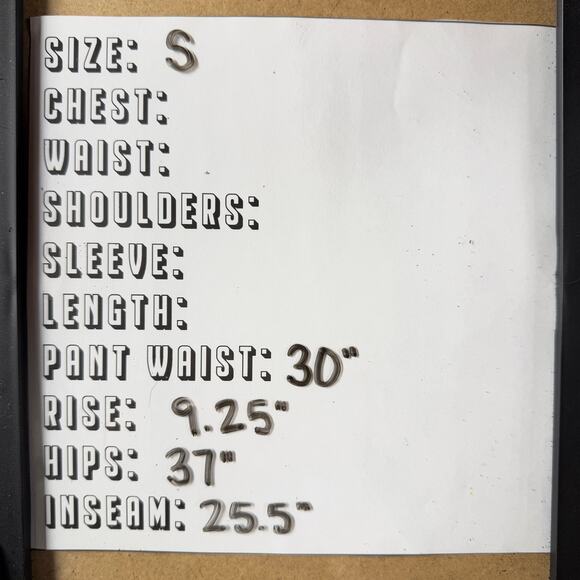 SIZE: S
CHEST:
WAIST:
SHOULDERS:
SLEEVE:
LENGTH:
PANT WAIST: 30"
RISE: 9.25"
HIPS: 37"
INSEAM: 25.5"